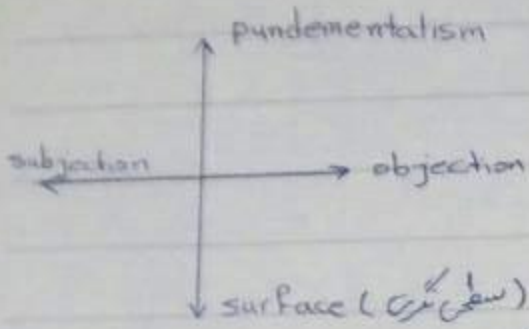 pundementalism
subjection
objection
surface (سطحی نگری)